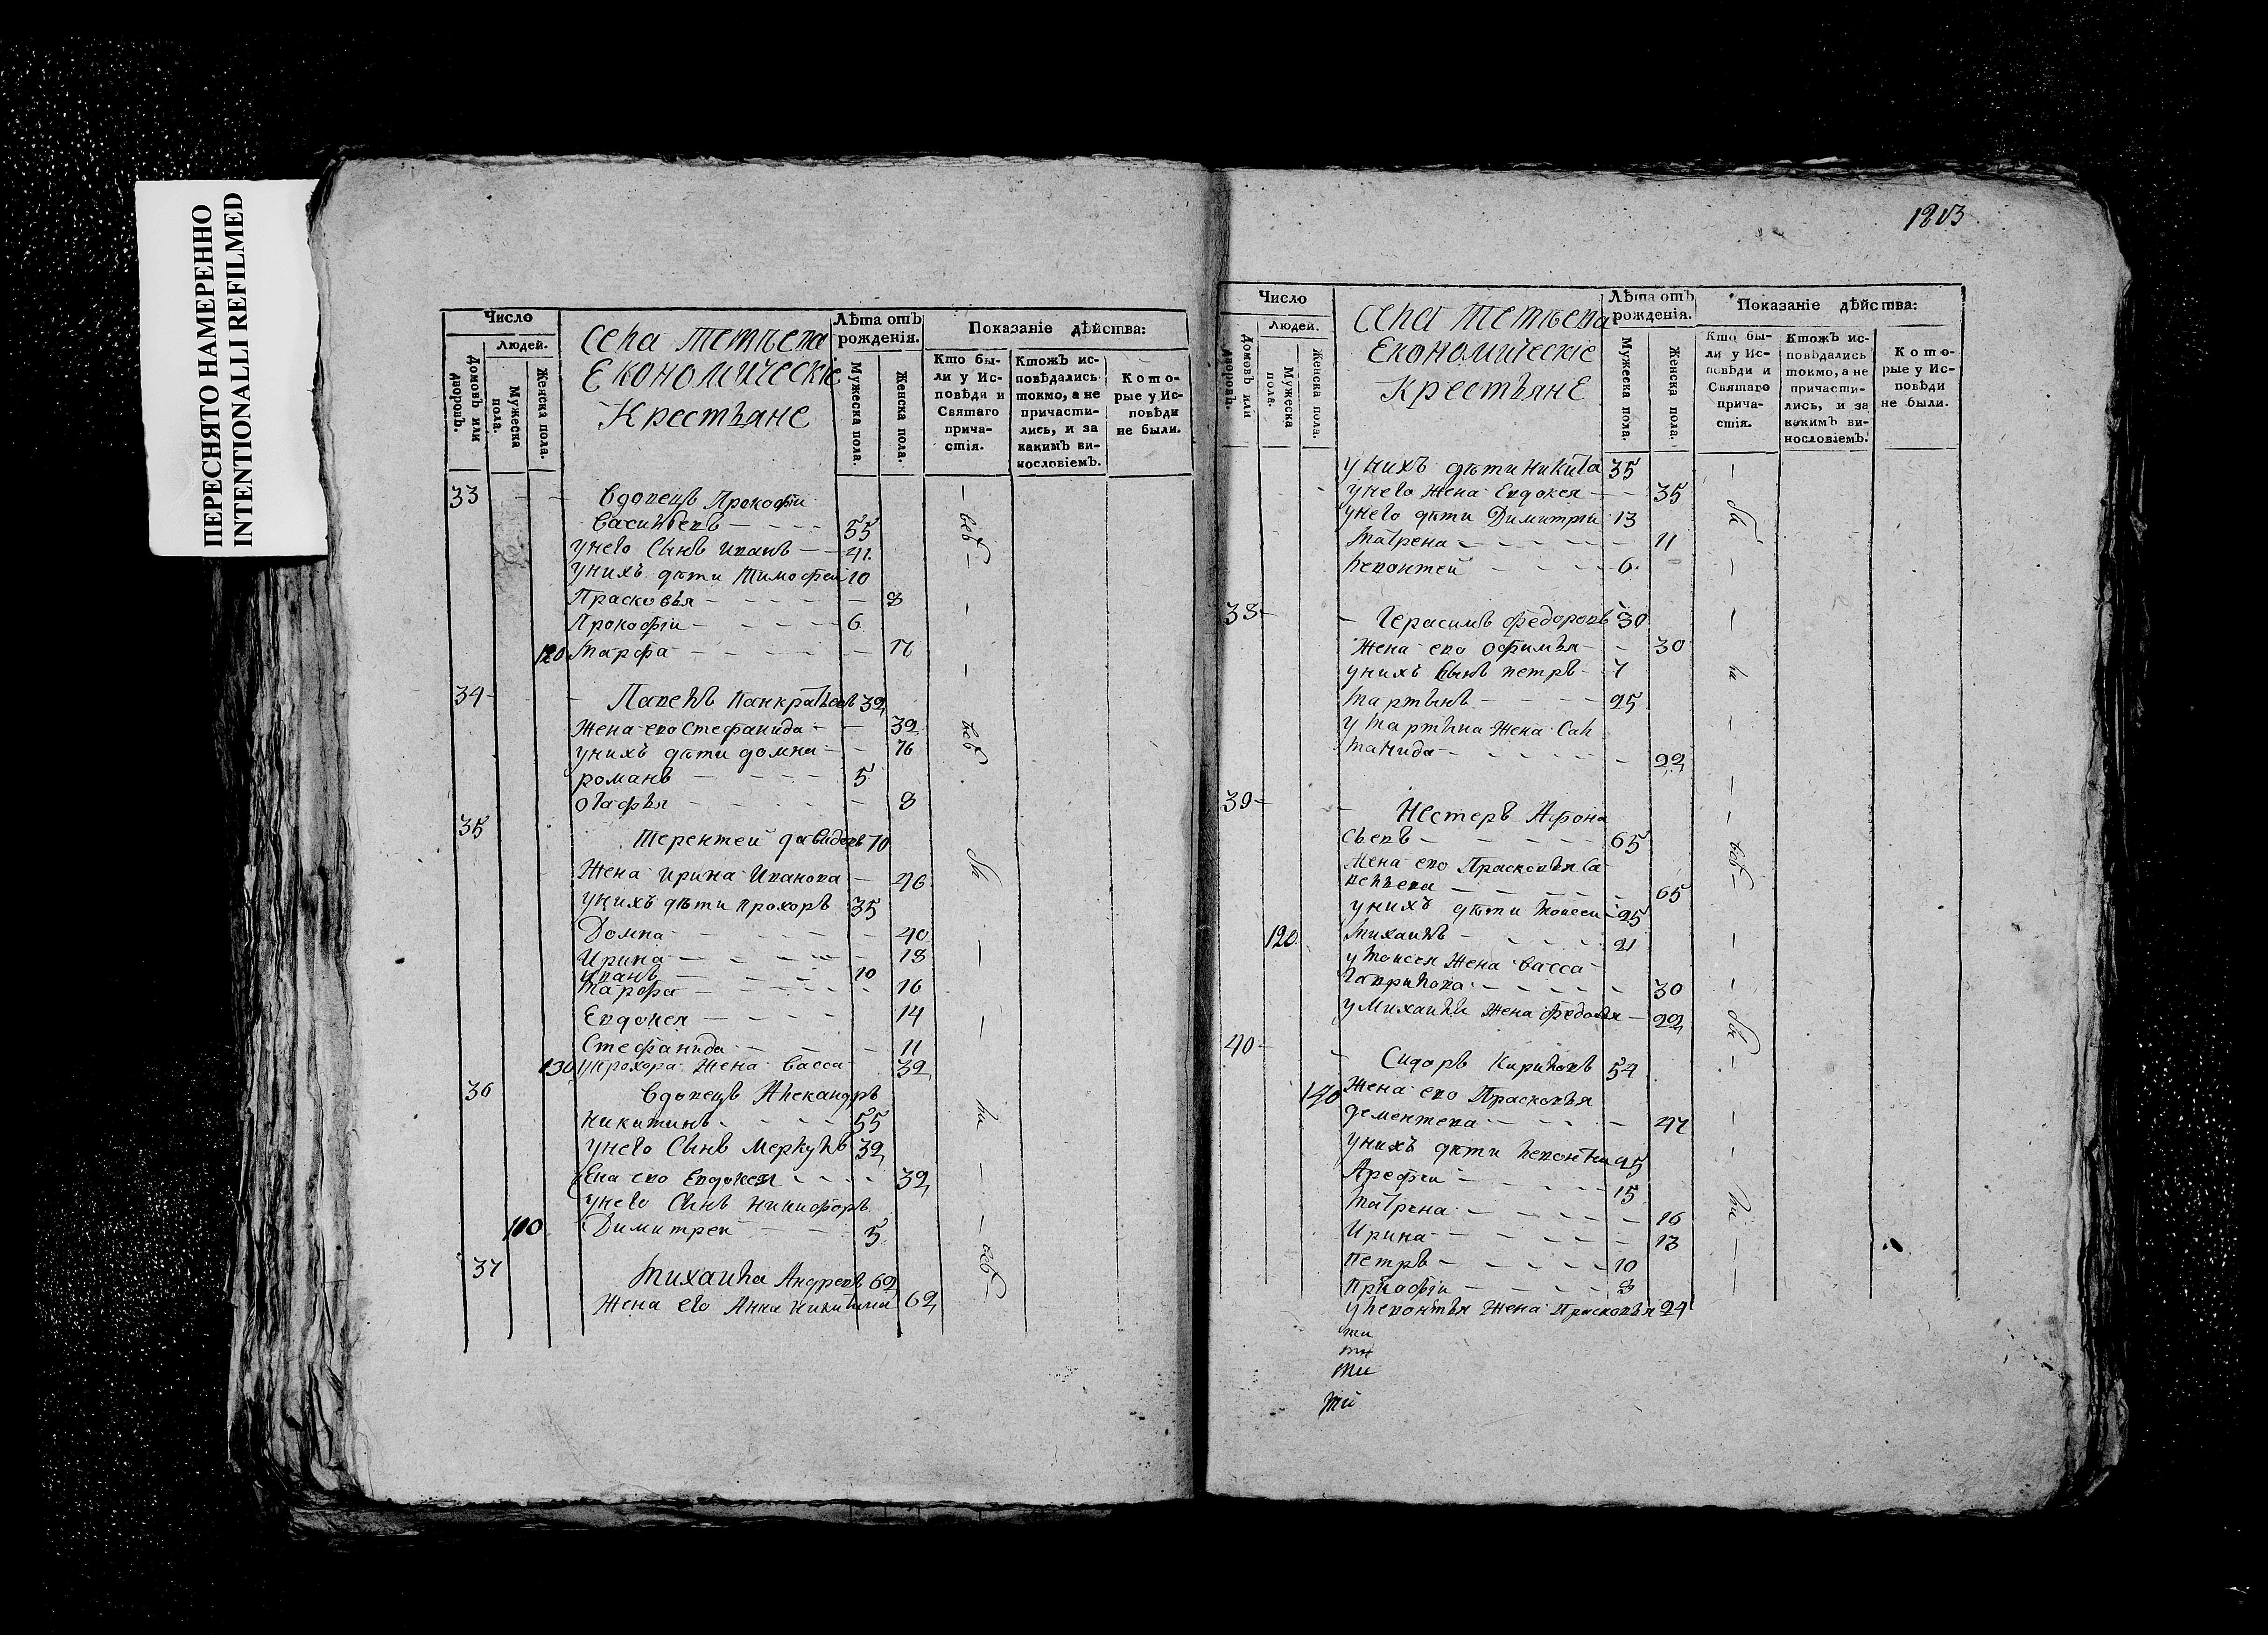 ПЕРЕСНЯТО НАМЕРЕННО
INTENTIONALLI REFILMED
Число
Людей.
Домовъ или дворовъ.
Мужеска пола.
Женска пола.
Села
Економическіе
Крестьяне
Лѣта отъ рожденія.
Мужеска пола.
Женска пола.
Показаніе дѣйства:
Кто бы-
ли у Ис-
повѣди и
Святаго
прича-
стія.
Ктожъ ис-
повѣдались
токмо, а не
причасти-
лись, и за
какимъ ви-
нословіемъ.
Кото-
рые у Ис-
повѣди
не были.
33 Вдовецъ Прокофи
Васильевъ 55
унего Сынъ иванъ 41
унихъ дѣти Тимофеи 10
Прасковья 8
Прокофіи 6
120 Марфа
34 Павелъ Панкратьевъ 32
Жена его Стефанида 32
унихъ дѣти домна 16
романъ 5
огафья 8
35 Терентей давидовъ 70
Жена ирина Иванова 46
унихъ дѣти прохоръ 35
Домна 40
Ирина 18
иванъ 10
марфа 16
Евдокея 14
Стефанида 11
130 упрохора Жена Васса 32
36 Вдовецъ Александръ
никитинъ 55
унего Сынъ Меркулъ 32
Жена его Евдокея 32
унего Сынъ никифоръ
110 Димитреи 5
37 михаила Андреевъ 62
Жена его Анна никитина 62
1203
Число
Людей.
Домовъ или дворовъ.
Мужеска пола.
Женска пола.
Села
Економическіе
Крестьяне
Лѣта отъ рожденія.
Мужеска пола.
Женска пола.
Показаніе дѣйства:
Кто бы-
ли у Ис-
повѣди и
Святаго
прича-
стія.
Ктожъ ис-
повѣдались
токмо, а не
причасти-
лись, и за
какимъ ви-
нословіемъ.
Кото-
рые у Ис-
повѣди
не были.
унихъ дѣти никита 35
унего Жена Евдокея 35
унего дѣти Димитріи 13
матрена 11
левонтей 6
38 Герасимъ федоровъ 30
Жена его офимья 30
унихъ сынъ петръ 7
мартынъ 25
у мартына Жена Сал
манида 22
39 Нестеръ Афона
сьевъ 65
жена его Прасковья Са
велѣева 65
унихъ дѣти моисеи 25
120 михаилъ 21
у моисея Жена васса
гаврилова 30
у Михаила Жена федосья 22
40 Сидоръ Кириловъ 54
140 Жена его Прасковья
дементева 47
унихъ дѣти левонтеи 25
Арефеи 15
матрена 16
Ирина 13
петръ 10
8
у левонтья Жена Прасковья 24
ти
ти
ти
ти